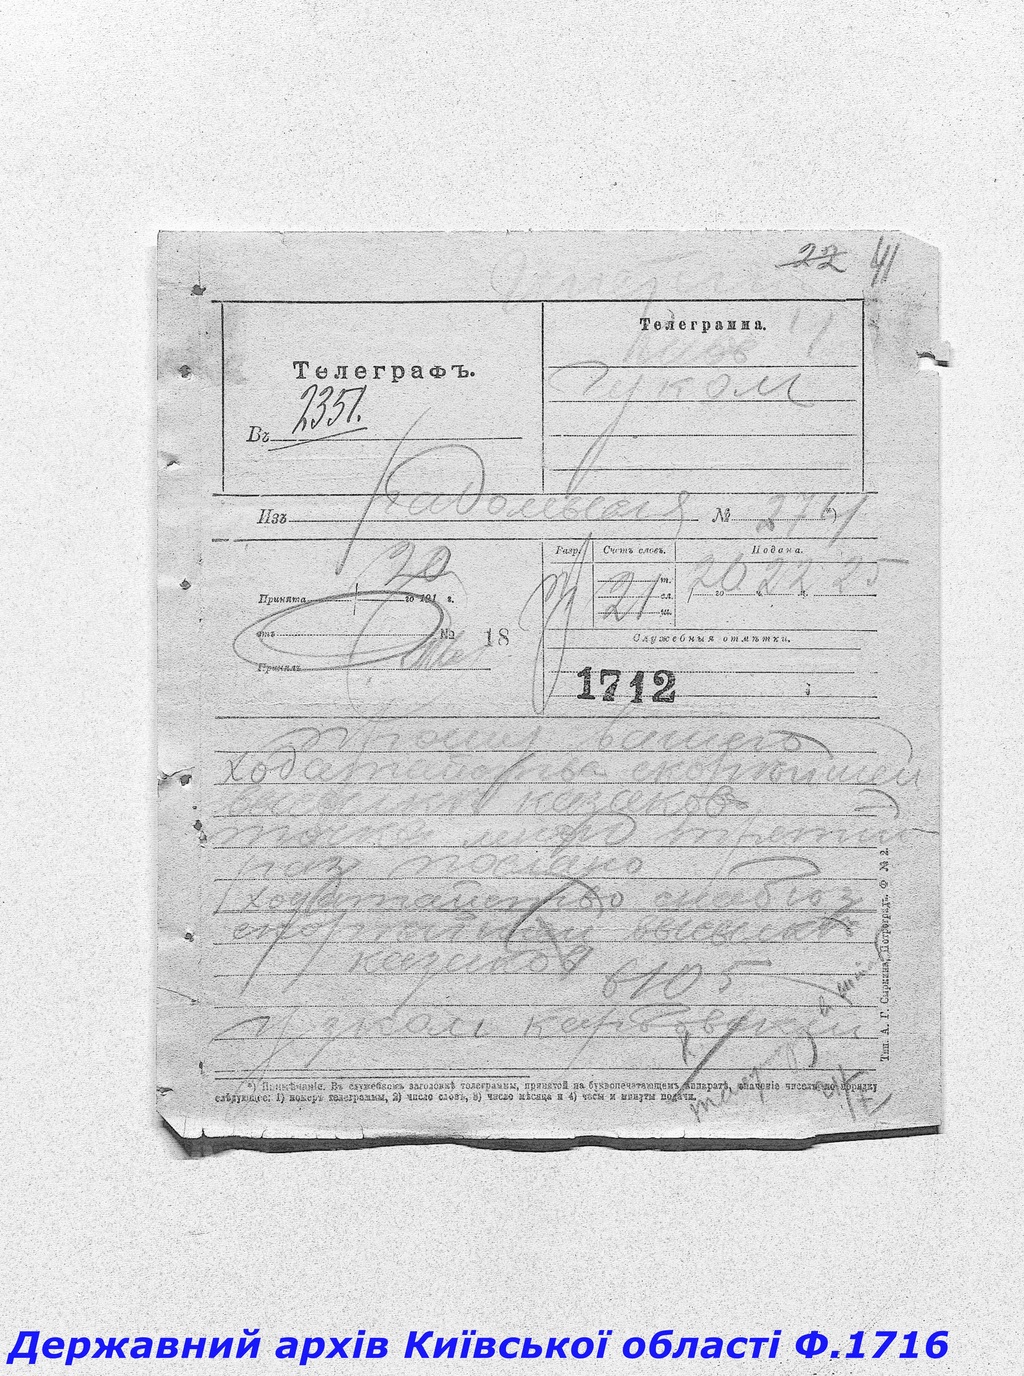 22 41
Телеграмма.
Киев
Телеграфъ.
Губком
2351.
Въ
Изъ Радомысля № 2761 *)
20
Разр. Счетъ словъ. Подана.
т.
21 сл. 20 го 22 ч. 25 м.
ш.
Принята го 191 г.
отъ № 18
Служебныя отмѣтки.
Принялъ
1712
Прошу вашего
ходатайства скорейшей
высылки казаков
точка мною третий
раз послано
ходатайство
скорейшей высылке
казаков 6105
Карвовский
Тип. А. Г. Сыркина, Петроградъ. Ф № 2.
*) Примѣчаніе. Въ служебномъ заголовкѣ телеграммы, принятой на буквопечатающемъ аппаратѣ, значеніе чиселъ по порядку
слѣдующее: 1) номеръ телеграммы, 2) число словъ, 3) число мѣсяца и 4) часы и минуты подачи.
Державний архів Київської області Ф.1716